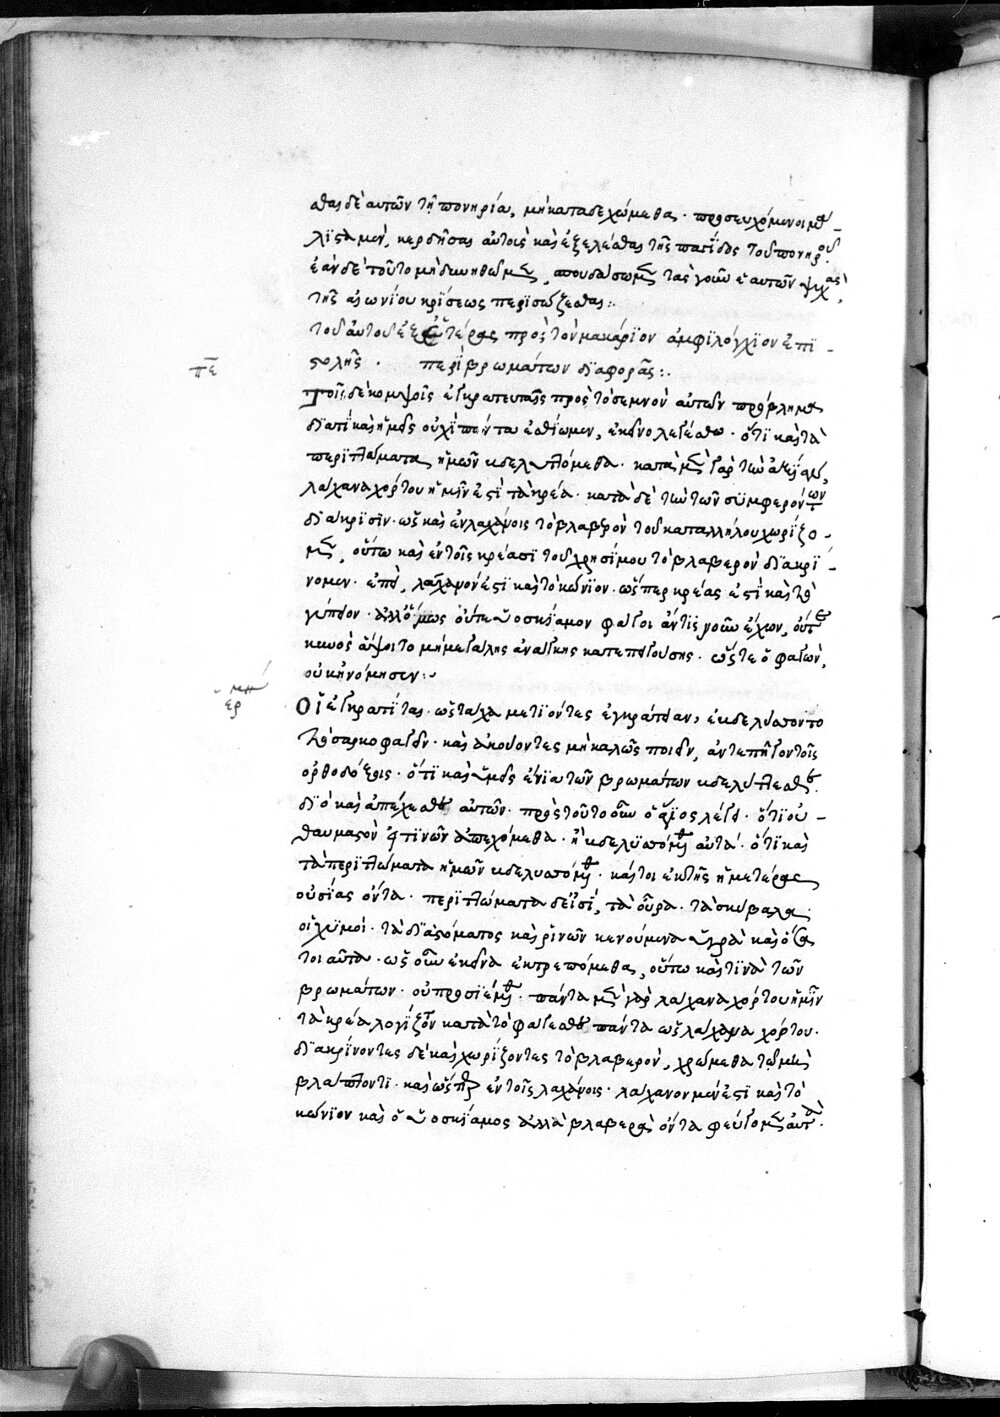 σθαι δὲ αὐτῶν τῇ πονηρίᾳ, μὴ καταδεχώμεθα· προσευχόμενοι
λιστα μὲν, κερδῆσαι αὐτοὺς καὶ ἐξελέσθαι τῆς παγίδος τοῦ πονηροῦ
ἐὰν δὲ τοῦτο μὴ δυνηθῶμεν, σπουδάσωμεν τὰς γοῦν ἑαυτῶν ψυχὰς
τῆς αἰωνίου κρίσεως περισώζεσθαι:
τοῦ αὐτοῦ ἐκ τῆς πρὸς τὸν μακάριον ἀμφιλόχιον ἐπι
στολῆς · περὶ βρωμάτων διαφορᾶς:
πε
Τοῖς δὲ κομψοῖς ἐγκρατευταῖς πρὸς τὸ σεμνὸν αὐτῶν πρόβλημα
διατί καὶ ἡμεῖς οὐχὶ πάντα ἐσθίωμεν, ἐκεῖνο λεγέσθω· ὅτι καὶ τὰ
περιττώματα ἡμῶν βδελυττόμεθα· κατὰ μὲν γὰρ τὴν ἀξίαν,
λάχανα χόρτου ἡμῖν ἐστὶ τὰ κρέα· κατὰ δὲ τὴν τῶν συμφερόντων
διάκρισιν· ὡς καὶ ἐν λαχάνοις τὸ βλαβερὸν τοῦ καταλλήλου χωρίζο
μεν, οὕτω καὶ ἐν τοῖς κρέασι τοῦ χρησίμου τὸ βλαβερὸν διακρί
νομεν· ἐπεὶ, λάχανόν ἐστι καὶ τὸ κώνιον· ὥσπερ κρέας ἐστὶ καὶ τὸ
γύπειον· ἀλλ' ὅμως οὔτε ὑοσκύαμον φάγοι ἄν τις νοῦν ἔχων, οὔτε
κυνὸς ἅψοιτο μὴ μεγάλης ἀνάγκης κατεπειγούσης· ὥστε ὁ φαγὼν,
οὐκ ἠνόμησεν:
ἑρμη
Οἱ ἐγκρατῖται ὡς τάχα μετιόντες ἐγκράτειαν, ἐβδελύσσοντο
τὸ σαρκοφαγεῖν· καὶ ἀκούοντες μὴ καλῶς ποιεῖν, ἀντεπῆγον τοῖς
ὀρθοδόξοις· ὅτι καὶ ὑμεῖς ἔνια τῶν βρωμάτων βδελύττεσθε
διὸ καὶ ἀπέχεσθε αὐτῶν· πρὸς τοῦτο οὖν ὁ ἅγιος λέγει· ὅτι οὐ
θαυμαστὸν εἴ τινῶν ἀπεχόμεθα· ἢ βδελυσσόμεθα αὐτά· ὅτι καὶ
τὰ περιττώματα ἡμῶν βδελυσσόμεθα· καίτοι ἐκ τῆς ἡμετέρας
οὐσίας ὄντα· περιττώματα δέ εἰσι, τὰ οὖρα· τὰ σκύβαλα
οἱ χυμοί· τὰ διὰ στόματος καὶ ῥινῶν κενούμενα ὑγρὰ καὶ ὅσα
τοιαῦτα· ὡς οὖν ἐκεῖνα ἐκτρεπόμεθα, οὕτω καὶ τινὰ τῶν
βρωμάτων· οὐ προσιέμεθα· πάντα μὲν γὰρ λάχανα χόρτου ἡμῖν
τὰ κρέα λογίζονται κατὰ τὸ φάγεσθε πάντα ὡς λάχανα χόρτου·
διακρίνοντες δὲ καὶ χωρίζοντες τὸ βλαβερὸν, χρώμεθα τῷ μὴ
βλάπτοντι· καὶ ὥσπερ ἐν τοῖς λαχάνοις· λάχανον μέν ἐστι καὶ τὸ
κώνιον καὶ ὁ ὑοσκύαμος ἀλλὰ βλαβερὰ ὄντα φεύγομεν αὐτά·